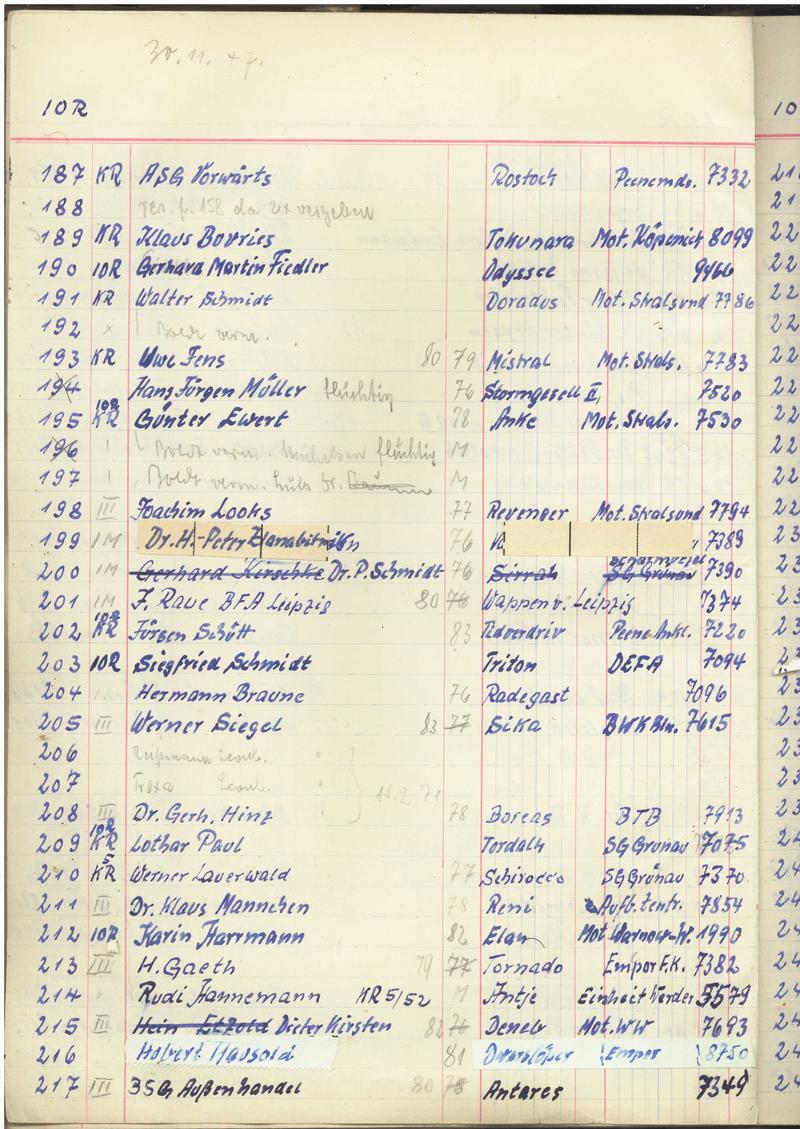 30.11.47.
10R
187 KR ASG Vorwärts Rostock Peenemde. 7332
188 res. f. 158 da 2x vergeben
189 KR Klaus Bovries Tokunara Mot. Köpenick 8099
190 10R Gerhard Martin Fiedler Odyssee 9466
191 KR Walter Schmidt Doradus Mot. Stralsund 7786
192 x Boldt verm.
193 KR Uwe Fens 80 79 Mistral Mot. Strals. 7783
194 Hans Jürgen Müller flüchtig 76 Sturmgesell II, 7520
195 10R KR Günter Ewert 78 Anke Mot. Strals. 7530
196 Boldt verm. flüchtig M
197 Boldt verm. M
198 III Joachim Looks 77 Revenger Mot. Stralsund 7794
199 IM Dr. H.-Peter 76 " 7389
200 IM Gerhard Kirschke Dr. P. Schmidt 76 Sirrah SG Grünau 7390
201 IM F. Rave BFA Leipzig 80 76 Wappen v. Leipzig 7374
202 10R KR Jürgen Schütt 83 Adverdriv Peene Ankl. 7220
203 10R Siegfried Schmidt Triton DEFA 7094
204 Hermann Braune 76 Radegast 7096
205 III Werner Siegel 83 77 Sika BWK Bln. 7615
206
207 Troxa 11.2.71
208 III Dr. Gerh. Hinz 78 Boreas BTB 7913
209 10R KR Lothar Paul Tordalk SG Grünau 7075
210 5 KR Werner Lauerwald 77 Schirocco SG Grünau 7370
211 III Dr. Klaus Mannchen 78 Reni Aufb. Zentr. 7854
212 10R Karin Harrmann 82 Elan Mot Warnow-W. 1990
213 III H. Gaeth 79 77 Tornado Empor F.K. 7382
214 Rudi Hannemann KR 5/52 M Antje Einheit Werder 5579
215 III Hein Etzold Dieter Kirsten 82 76 Deneb Mot. WW 7693
216 Hubert Hausold 81 Dwarslöper Empor 8750
217 III BSG Außenhandel 80 78 Antares 7349